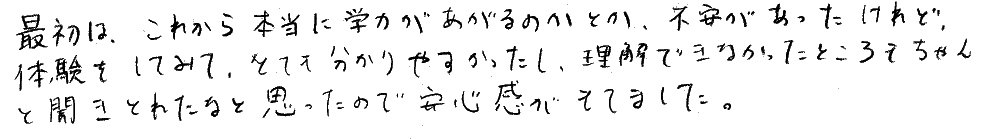 最初は、これから本当に学力があがるのかとか、不安があったけれど、
体験をしてみて、とても分かりやすかったし、理解できなかったところもちゃん
と聞きとれたなと思ったので安心感がもてました。